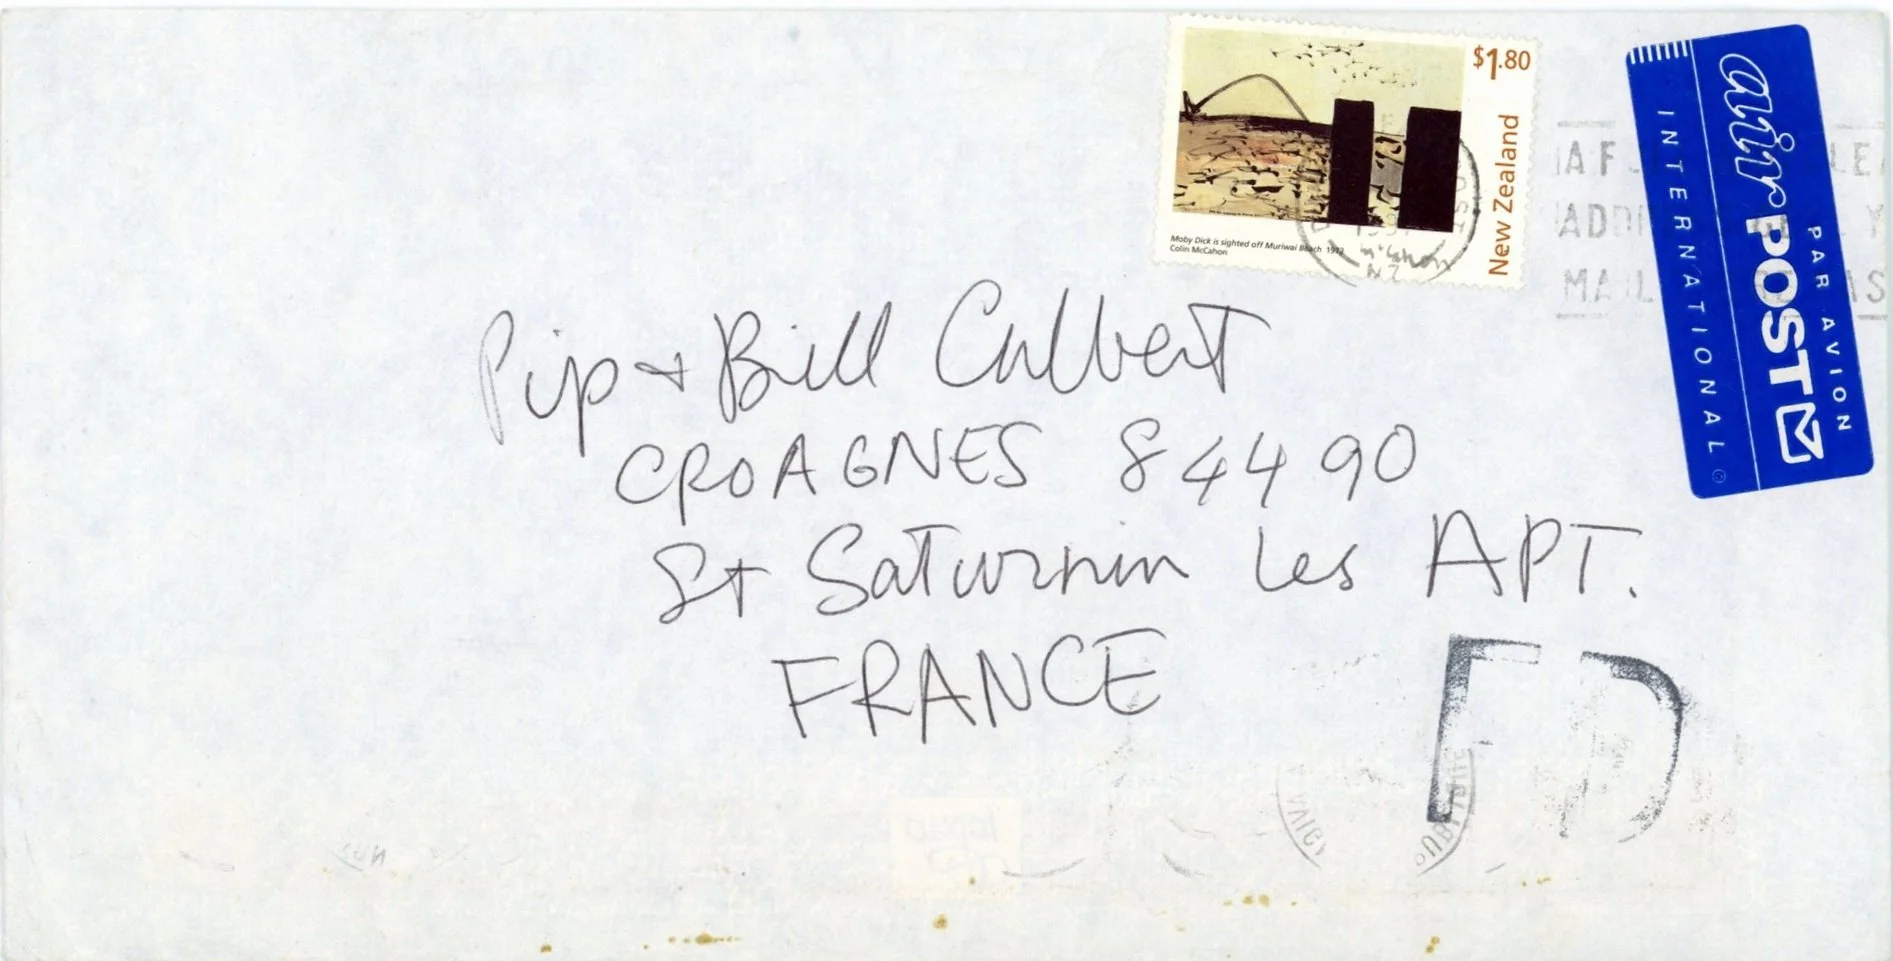 $1.80
New Zealand
Moby Dick is sighted off Muriwai Beach 1972
Colin McCahon
McCahon
NZ
air POST
PAR AVION
INTERNATIONAL
MAIL
Pip + Bill Culbert
CROAGNES 84490
St Saturnin Les APT.
FRANCE